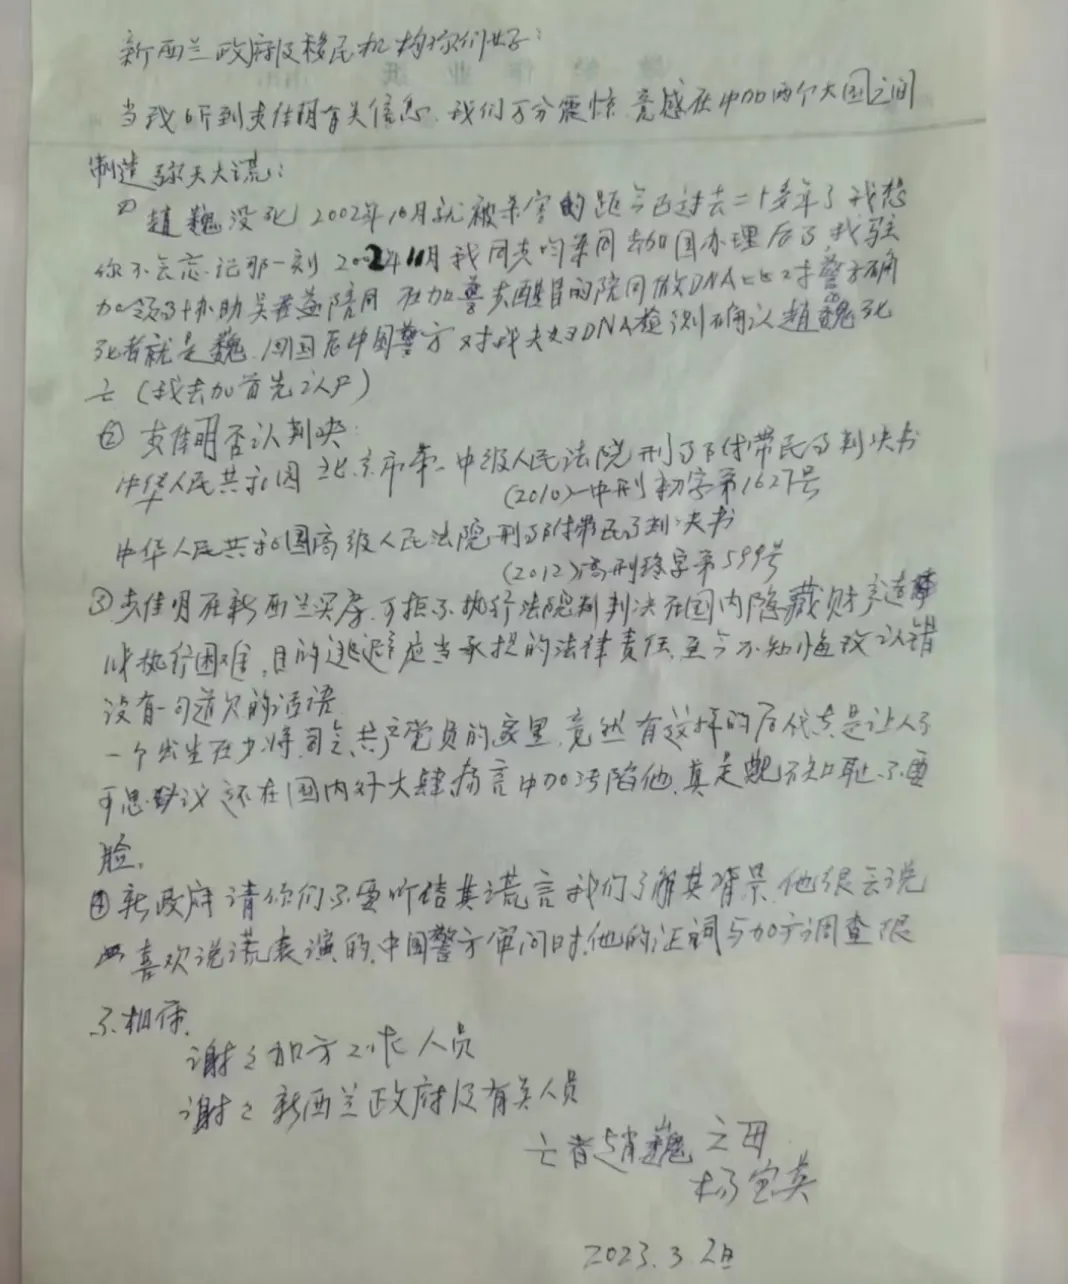 新西兰政府及移民机构你们好:
当我听到李佳明有关信息,我们万分震惊,竟感在中加两个大国之间
制造弥天大谎:
① 趙巍没死,2002年10月就被杀害的距今已过去二十多年了我想
你不会忘记那一刻2002年11月我同 去加国办理后事,我驻
加领事协助 陪同 在加警 医院同做DNA比对警方确
死者就是巍,回国后中国警方对我夫妇DNA检测确认趙巍死
亡(我去加首先认尸)
② 李佳明否认判决:
中华人民共和国北京市第一中级人民法院刑事附带民事判决书
(2010)一中刑初字第1627号
中华人民共和国高级人民法院刑事附带民事判决书
(2012)高刑终字第599号
③李佳明在新西兰买房,可拒不执行法院判决在国内隐藏财产造
成执行困难,目的逃避应当承担的法律责任,至今不知悔改认错
没有一句道欠的话语
一个出生在少将司令共产党员的家里,竟然有这样的后代真是让人不
可思议还在国内外大肆扬言中加污陷他,真是 不知耻不要
脸,
④新政府请你们不要听信其谎言我们了解其背景,他很会说
喜欢说谎表演的,中国警方审问时,他的证词与加方调查很
不相符,
谢谢加方工作人员
谢谢新西兰政府及有关人员
亡者趙巍之母
杨宝英
2023.3.2日